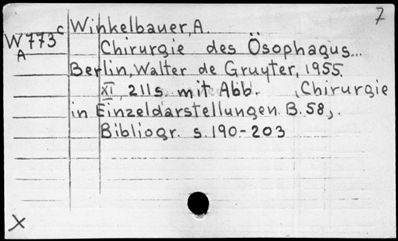 7
c Winkelbauer, A.
W773
A
Chirurgie des Ösophagus...
Berlin, Walter de Gruyter, 1955.
XI, 211 s. mit Abb. (Chirurgie
in Einzeldarstellungen B. 58).
Bibliogr. s. 190-203
X